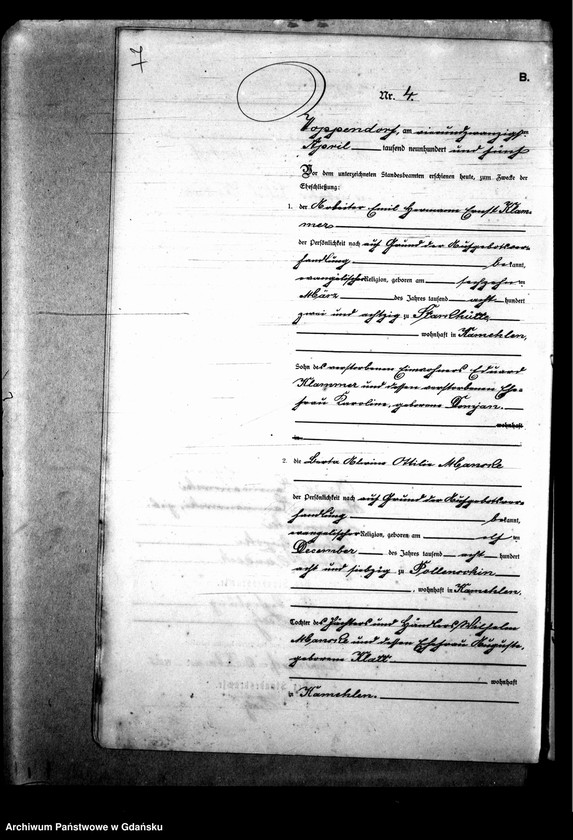 B.
Nr. 4.
Hoppendorf, am neunundzwanzigsten
April tausend neunhundert und fünf
Vor dem unterzeichneten Standesbeamten erschienen heute, zum Zwecke der
Eheschließung:
1. der Arbeiter Emil Hermann Ernst Klam-
mer
der Persönlichkeit nach auf Grund der Aufgebotsver-
handlung bekannt,
evangelischer Religion, geboren am sechzehnten
März des Jahres tausend acht hundert
zwei und achtzig zu Starkhütte
wohnhaft in Kamehlen,
Sohn des verstorbenen Einwohners Eduard
Klammer und dessen verstorbenen Ehe-
frau Karoline, geborene
wohnhaft
in
2. die Berta Ottilie Manske
der Persönlichkeit nach auf Grund der Aufgebotsver-
handlung bekannt,
evangelischer Religion, geboren am elften
December des Jahres tausend acht hundert
acht und siebzig zu
, wohnhaft in Kamehlen,
Tochter des Pächters und Händlers Wilhelm
Manske und dessen Ehefrau Auguste,
geborene Klatt
wohnhaft
in Kamehlen.
Archiwum Państwowe w Gdańsku